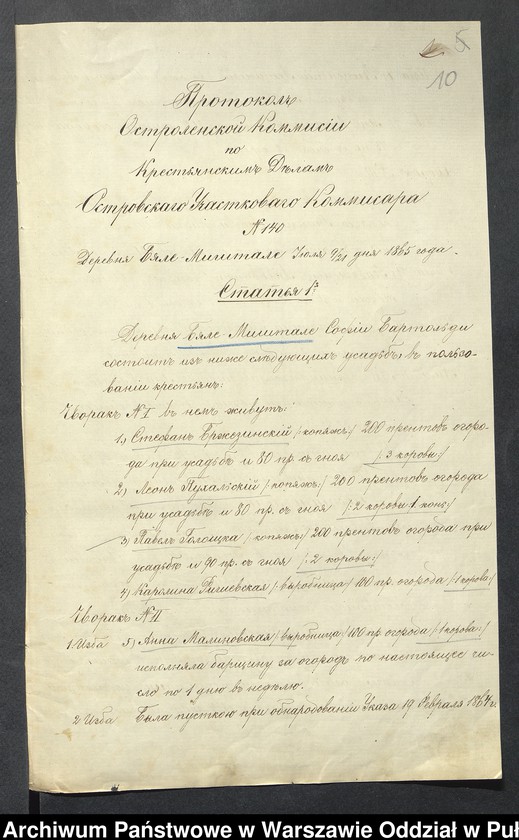 5
10
Протоколъ
Остроленской Коммисіи
по
Крестьянскимъ Дѣламъ
Островскаго Участковаго Коммисара
№ 140
Деревня Бяле-Мишталe Іюля 9/21 дня 1865 года.
Статья 1я
Деревня Бяле-Мишталe Софіи Бартольди
состоитъ изъ ниже слѣдующихъ усадьбъ въ пользо-
ваніи крестьянъ:
Чворакъ № I въ немъ живутъ:
1) Стефанъ Бржезинскій /:копяжъ:/ 200 прентовъ огоро-
да при усадьбѣ и 80 пр. съ гноя /:3 коровы:/
2) Леонъ Пухальскій /:копяжъ:/ 200 прентовъ огорода
при усадьбѣ и 80 пр. съ гноя /:2 коровы 1 конь:/
3) Павелъ Голошка /:копяжъ:/ 200 прентовъ огорода при
усадьбѣ и 90 пр. съ гноя /:2 коровы:/
4) Каролина /:выробница:/ 100 пр. огорода /:1 корова:/
Чворакъ № II
1 Изба 5) Анна Малиновская /:выробница:/ 100 пр. огорода /:1 корова:/
исполняла барщину за огородъ по настоящее чи-
сло по 1 дню въ недѣлю.
2 Изба Была пусткою при обнародованіи Указа 19 Февраля 1864 г.
Archiwum Państwowe w Warszawie Oddział w Puł